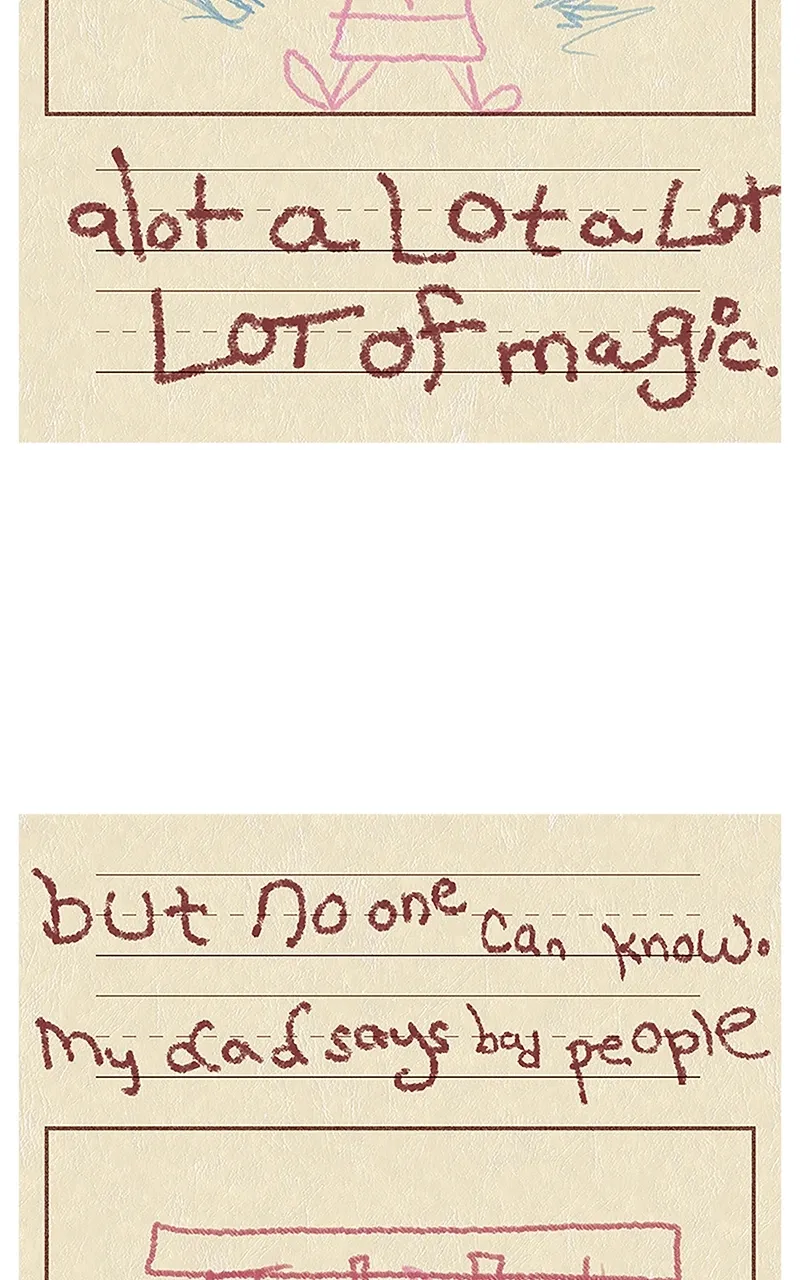 alot a Lot a Lot
LOT of magic.
but no one can know.
My dad says bad people